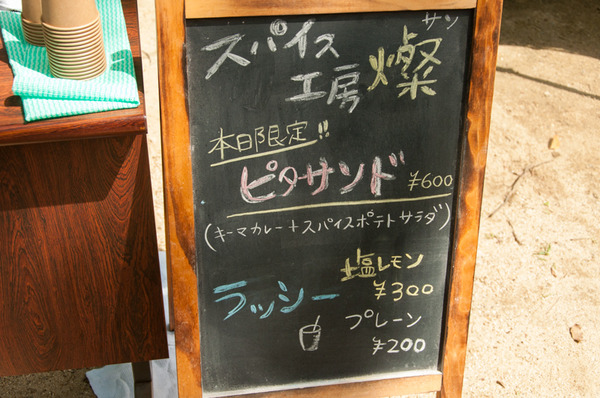 サン
スパイス
工房 燦
本日限定!!
ピタサンド ¥600
(キーマカレー+スパイスポテトサラダ)
ラッシー
塩レモン
¥300
プレーン
¥200